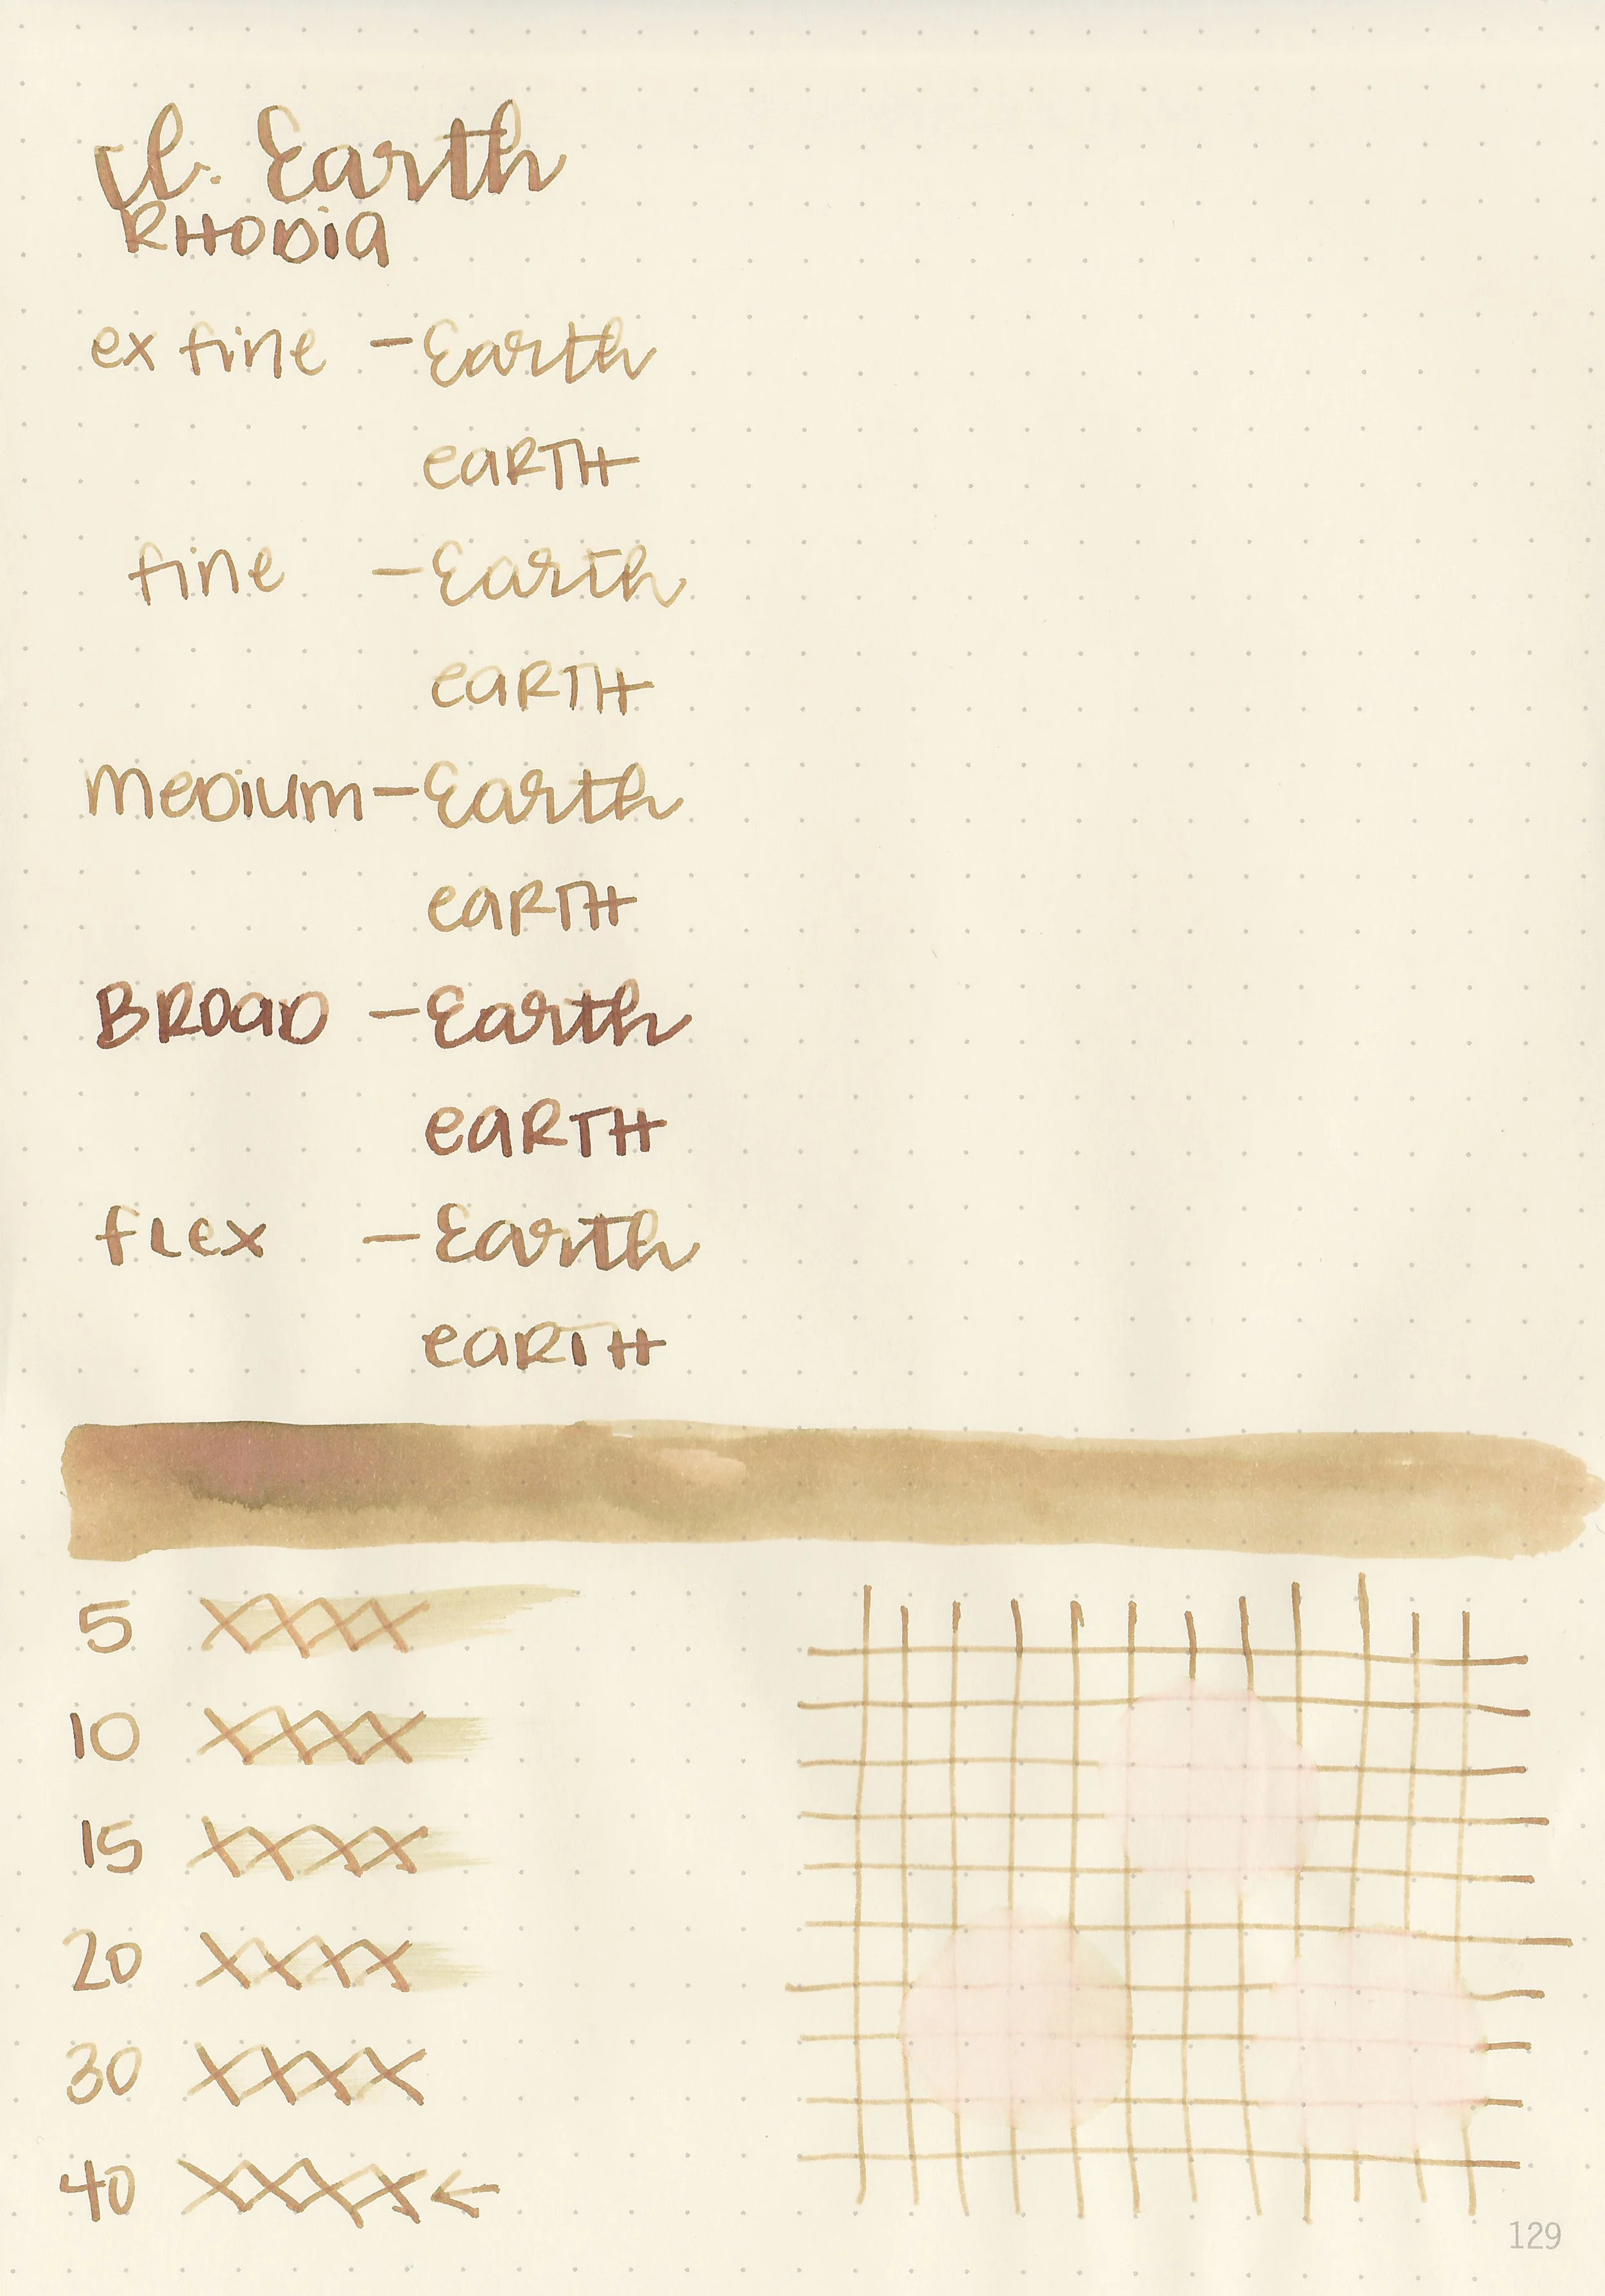 Earth
RHODIA
ex fine - Earth
EARTH
fine - Earth
EARTH
MEDIUM - Earth
EARTH
BROAD - Earth
EARTH
FLEX - Earth
EARTH
5 XXXX
10 XXXX
15 XXXX
20 XXXX
30 XXXX
40 XXXX ←
129